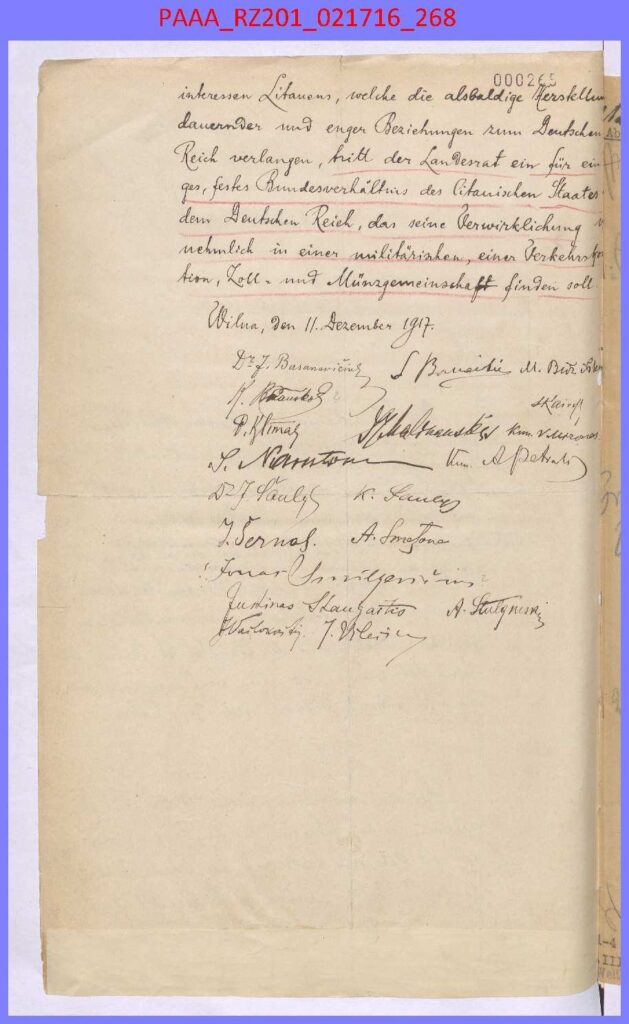 PAAA_RZ201_021716_268
000265
interessen Litauens, welche die alsbaldige Herstellun
dauernder und enger Beziehungen zum Deutschen
Reich verlangen, tritt der Landesrat ein für ein
ges, festes Bundesverhältnis des litauischen Staates
dem Deutschen Reich, das seine Verwirklichung
nehmlich in einer militärischen, einer Verkehrs
tion, Zoll- und Münzgemeinschaft finden soll
Wilna, den 11. Dezember 1917.
Dr J. Basanavičius
S Banaitis M. Birž
K. Bizauskas
P. Klimas
Kun. A Petrulis
S. Narutow
Dr J. Šaulys K. Šaulys
J. Šernas. A. Smetona
Jonas Smilgevičius
Justinas Staugaitis A. Stulginski
J. Vileišis